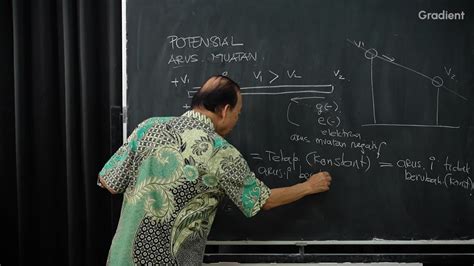 Gradient
POTENSIAL
ARUS MUATAN
+V₁ i V₁ > V₂ V₂
q(-)
e(-)
elektron
arus muatan negatif
= Tetap (Konstant) = arus i tidak
arus i berubah (Konst
V₁
V₂